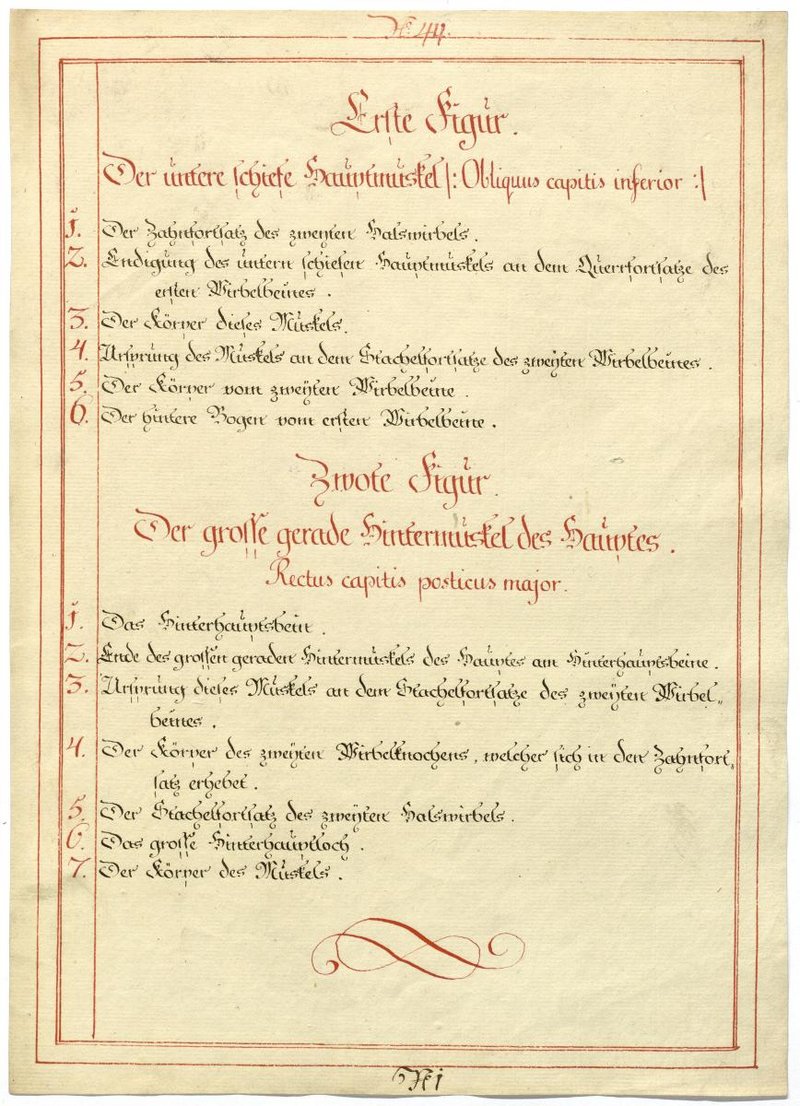 Erste Figur.
Der untere schiefe Hauptmuskel |: Obliquus capitis inferior :|
1. Der Zahnfortsatz des zweyten Halswirbels.
2. Endigung des untern schiefen Hauptmuskels an dem Querrfortsatze des
ersten Wirbelbeines.
3. Der Körper dieses Muskels.
4. Ursprung des Muskels an dem Stachelfortsatze des zweyten Wirbelbeines.
5. Der Körper vom zweyten Wirbelbeine.
6. Der hintere Bogen vom ersten Wirbelbeine.
Zwote Figur.
Der grosse gerade Hintermuskel des Hauptes.
Rectus capitis posticus major.
1. Das Hinterhauptsbein.
2. Ende des grossen geraden Hintermuskels des Hauptes am Hinterhauptsbeine.
3. Ursprung dieses Muskels an dem Stachelfortsatze des zweyten Wirbel„
beines.
4. Der Körper des zweyten Wirbelknochens, welcher sich in den Zahnfort„
satz erhebet.
5. Der Stachelfortsatz des zweyten Halswirbels.
6. Das grosse Hinterhauptloch.
7. Der Körper des Muskels.